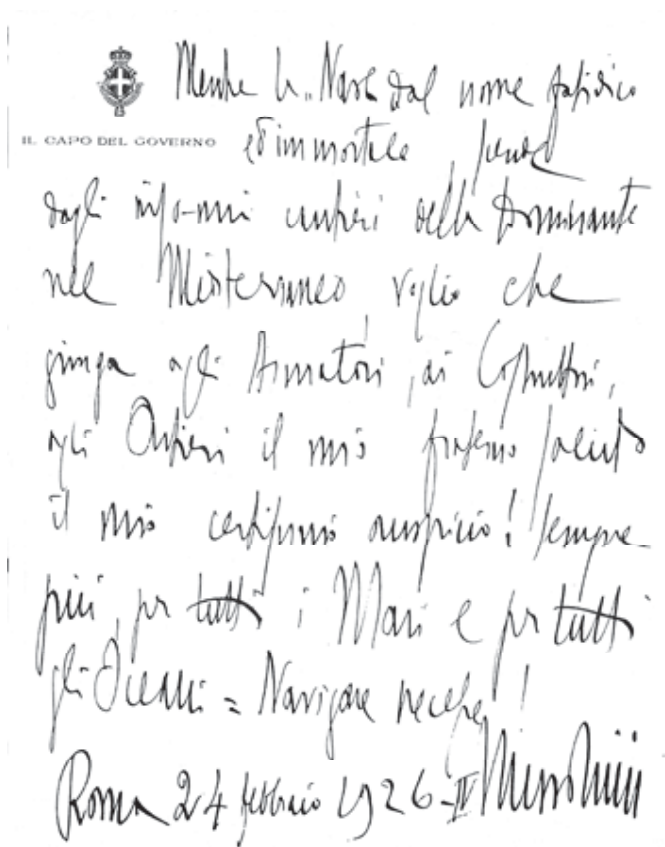 Mentre la Nave dal nome fatidico
IL CAPO DEL GOVERNO
ed immortale, scende
dagli cantieri della Dominante
nel Mediterraneo, voglio che
giunga agli Armatori, ai Costruttori,
agli Artieri il mio fraterno saluto
il mio certissimo auspicio! Sempre
più, per tutti i Mari e per tutti
gli Oceani = Navigare necesse!
Roma 24 febbraio 1926-IV Mussolini